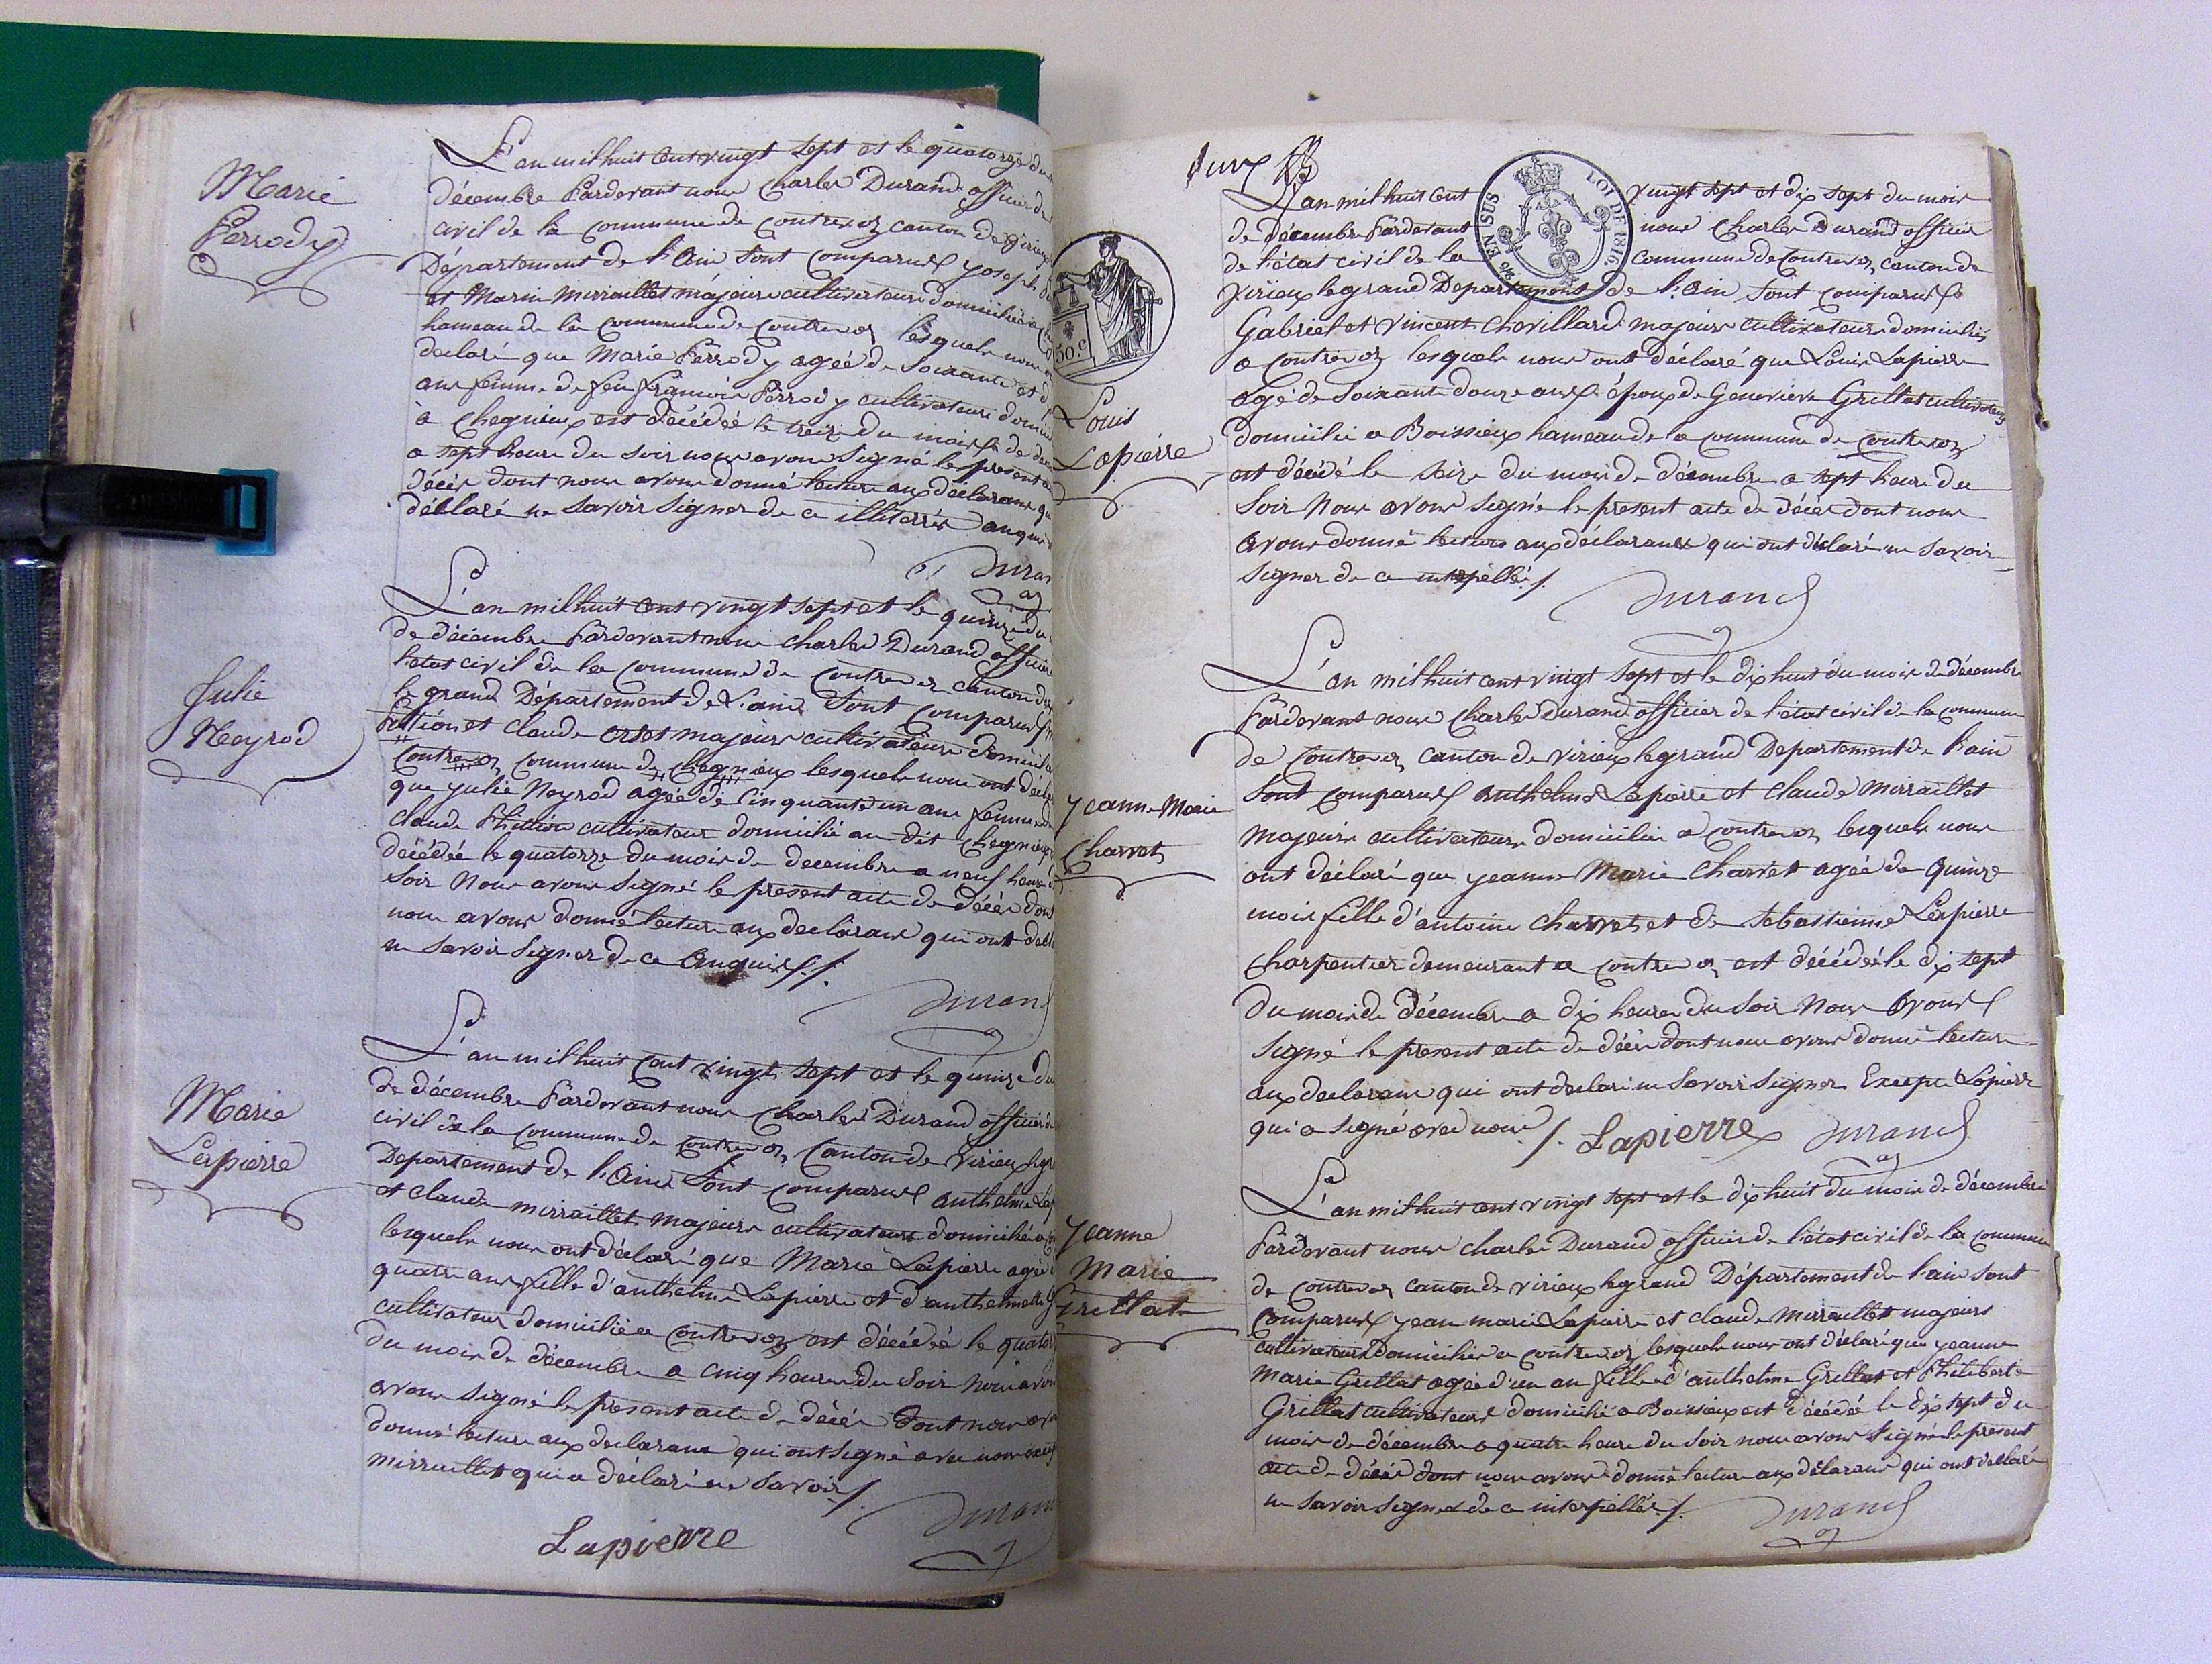 Marie
Perrody
L'an mil huit cent vingt sept et le quatorze du
décembre Pardevant nous Charles Durand officier de
civil de la commune de Contrevoz canton de virieux
Département de l'Ain sont comparus joseph
et Marin mirraillet majeurs cultivateurs domiciliés à
hameau de la commune de Contrevoz lesquels nous
declaré que Marie Perrody agée de Soixante et
ans femme de feu françois Perrody cultivateur
à Chegnieux est décédée le treize du mois de
a sept heure du soir nous avons signé le present
décès dont nous avons donné lecture aux déclarans
déclaré ne savoir signer de ce illiterrés
Duran
Julie
Neyrod
L'an mil huit cent vingt sept et le quinze du
de décembre Pardevant nous Charles Durand officier
l'état civil de la commune de Contrevoz canton de
le grand Département de L'ain Sont comparus
Pittion et Claude ortet majeurs cultivateurs
Contrevoz commune de Chegnieux lesquels nous ont
que julie Neyrod agée de Cinquante un ans femme de
Claude Pittion cultivateur domicilié au dit Chegnieux
décédée le quatorze du mois de decembre a neuf heure
soir Nous avons signé le present acte de décès dont
nous avons donné lecture aux declarans qui ont
ne savoir signer de ce enquis ./.
Durand
Marie
Lapierre
L'an mil huit cent vingt sept et le quinze du
de décembre Pardevant nous Charles Durand officier de
civil de la commune de Contrevoz Canton de Virieux
Departement de l'Ain Sont comparus anthelme
et claude mirraillet majeurs cultivateurs domiciliés
lesquels nous ont déclaré que Marie Lapierre agée
quatre ans fille d'anthelme Lapierre et d'anthelmette
cultivateur domicilié a Contrevoz est décédée le
du mois de décembre a cinq heure du soir Nous avons
avons signé le present acte de décès dont nous
donné lecture aux declarans qui ont signé avec nous
mirraillet qui a déclaré ne savoir ./.
Durand
Lapierre
L'an mil huit cent vingt sept et dix sept du mois
de décembre Pardevant nous Charles Durand officier
de l'état civil de la commune de Contrevoz canton de
Virieux le grand Departement de l'Ain sont comparus
EN SUS
LOI DE 1816
50.c
Louis
Lapierre
Gabriel et Vincent Chevillard majeurs cultivateurs domiciliés
a Contrevoz lesquels nous ont déclaré que Louis Lapierre
agé de Soixante douze ans époux de Genevieve Grillat cultivateur
domicilié a Boissieux hameau de la commune de Contrevoz
est décédé le seize du mois de décembre a sept heure du
soir Nous avons signé le present acte de décès dont nous
avons donné lecture aux déclarans qui ont déclaré ne savoir
signer de ce interpellés ./.
Durand
Jeanne Marie
Charvet
L'an mil huit cent vingt sept et le dix huit du mois de décembre
Pardevant nous Charles Durand officier de l'état civil de la commune
de Contrevoz canton de Virieux le grand Departement de l'ain
sont comparus anthelme Lapierre et claude mirraillet
majeurs cultivateurs domiciliés a Contrevoz lesquels nous
ont déclaré que jeanne Marie Charvet agée de quinze
mois fille d'antoine charvet et de sebastienne Lapierre
Charpentier demeurant a Contrevoz est décédée le dix sept
du mois de décembre a dix heures du soir Nous avons
signé le present acte de décès dont nous avons donné lecture
aux declarans qui ont declaré ne savoir signer Excepté Lapierre
qui a signé avec nous ./. Lapierre Durand
Jeanne
Marie
Grillat
L'an mil huit cent vingt sept et le dix huit du mois de décembre
Pardevant nous Charles Durand officier de l'état civil de la commune
de Contrevoz canton de virieux le grand Département de l'ain sont
Comparus jean marie Lapierre et claude mirraillet majeurs
cultivateurs domiciliés a Contrevoz lesquels nous ont déclaré que jeanne
Marie Grillat agée d'un an fille d'anthelme Grillat et Philiberte
Grillat cultivateurs domicilié a Boissieux est décédé le dix sept du
mois de décembre a quatre heure du soir nous avons signé le present
acte de décès dont nous avons donné lecture aux déclarans qui ont déclaré
ne savoir signer de ce interpellés ./.
Durand